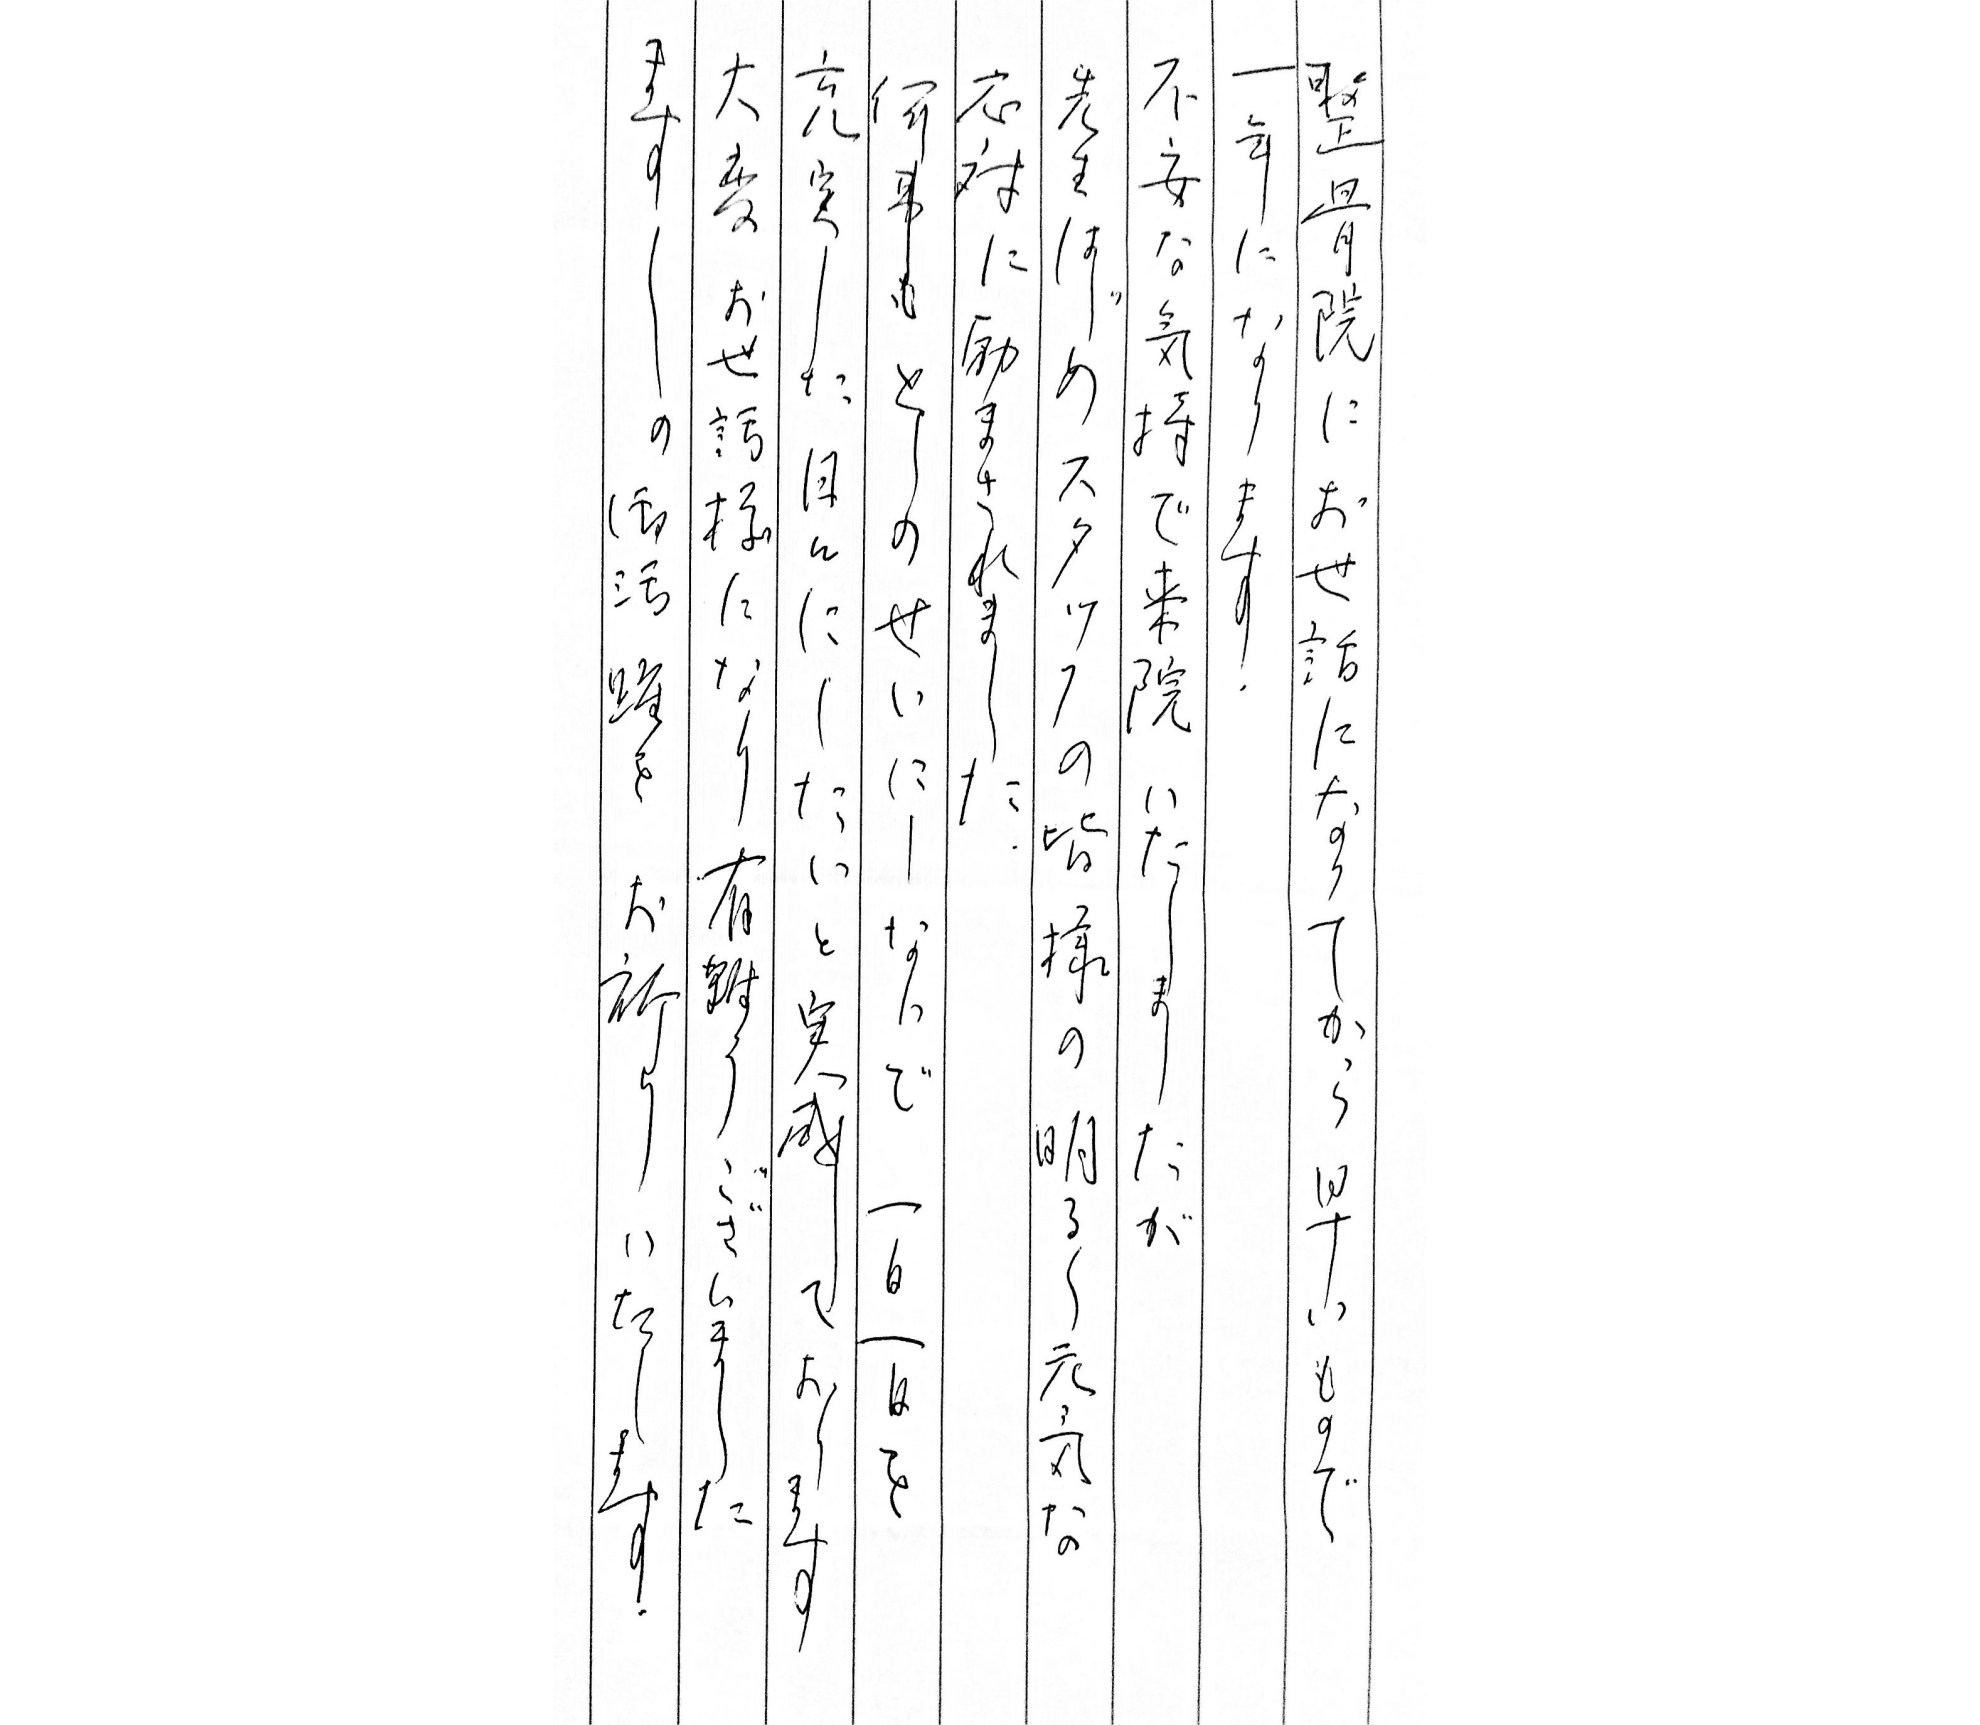 整骨院におせ話になってから早いもので
一年になります.
不安な気持で来院いたしましたが
先生はじめスタッフの皆様の明るく元気な
応対に励まされました.
何事もとしのせいにしないで一日一日を
充実した日々にしたいと実感しております
大変おせ話様になり有難うございました
ますますの御活躍をお祈りいたします.